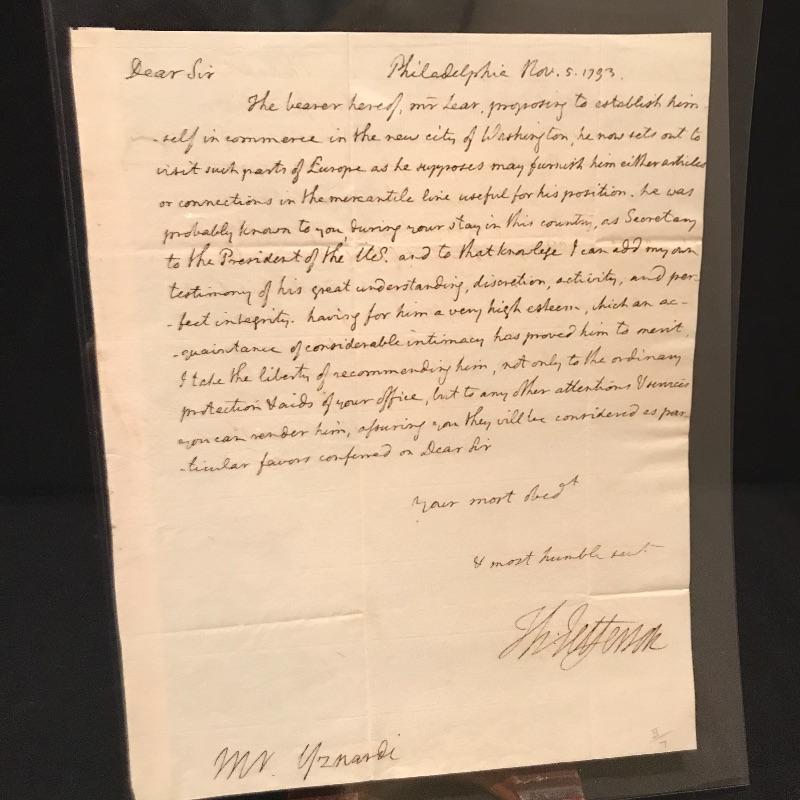 Dear Sir Philadelphia Nov. 5. 1793.
The bearer hereof, mr Lear, proposing to establish him
-self in commerce in the new city of Washington, he now sets out to
visit such parts of Europe as he supposes may furnish him either articles
or connections in the mercantile line useful for his position. he was
probably known to you, during your stay in this country, as Secretary
to the President of the U.S. and to that knowlege I can add my own
testimony of his great understanding, discretion, activity, and per-
-fect integrity. having for him a very high esteem, which an ac-
-quaintance of considerable intimacy has proved him to merit,
I take the liberty of recommending him, not only to the ordinary
protection & aids of your office, but to any other attentions & services
you can render him, assuring you they will be considered as par-
-ticular favors conferred on Dear Sir
Your most obedt
& most humble servt
Th: Jefferson
Mr. Yznardi